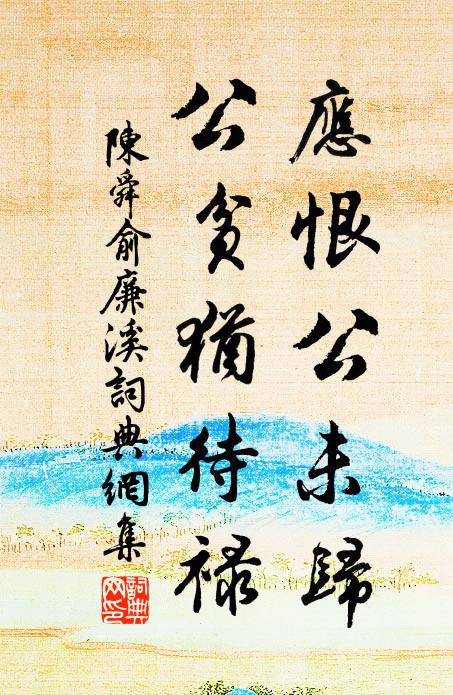 應恨公未歸
公貧猶待祿
陳舜俞廉溪詞典網集
詞典